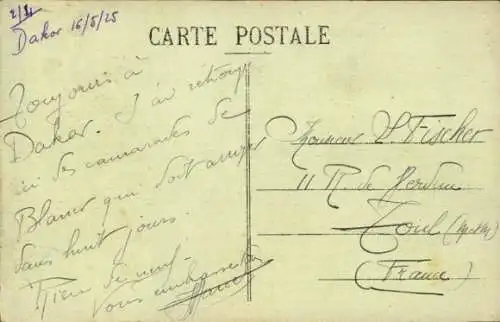 2/4
Dakar 16/5/25
CARTE POSTALE
Toujours à
Dakar. J'ai retrouvé
ici des camarades de
qui doit arriver
dans huit jours.
Rien de neuf.
Vous embrasse
Monsieur Fischer
11 R. de Verdun
Toul (M-et-M)
(France)